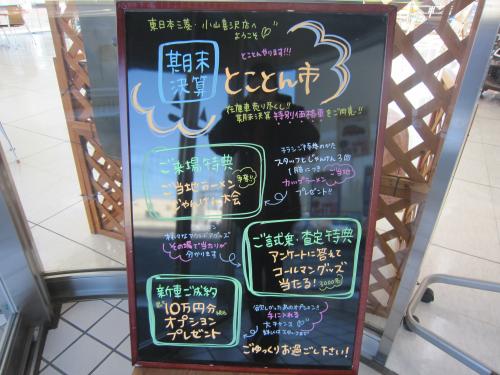 東日本三菱・小山喜沢店へ
ようこそ
期末
決算
とことんやります!!!
とことん市
在庫車売り尽くし!!
期末決算 特別価格車をご用意!!
ご来場特典
ご当地ラーメン
じゃんけん大会
チラシご持参のかた
スタッフとじゃんけん3回
1勝につき ご当地
カップラーメン
プレゼント!!
その場で当たりが
分かります
ご試乗・査定特典
アンケートに答えて
コールマングッズ
当たる!
新車ご成約
10万円分
オプション
プレゼント
欲しかったあのオプション!!
手に入れる
大チャンス
ごゆっくりお過ごし下さい!